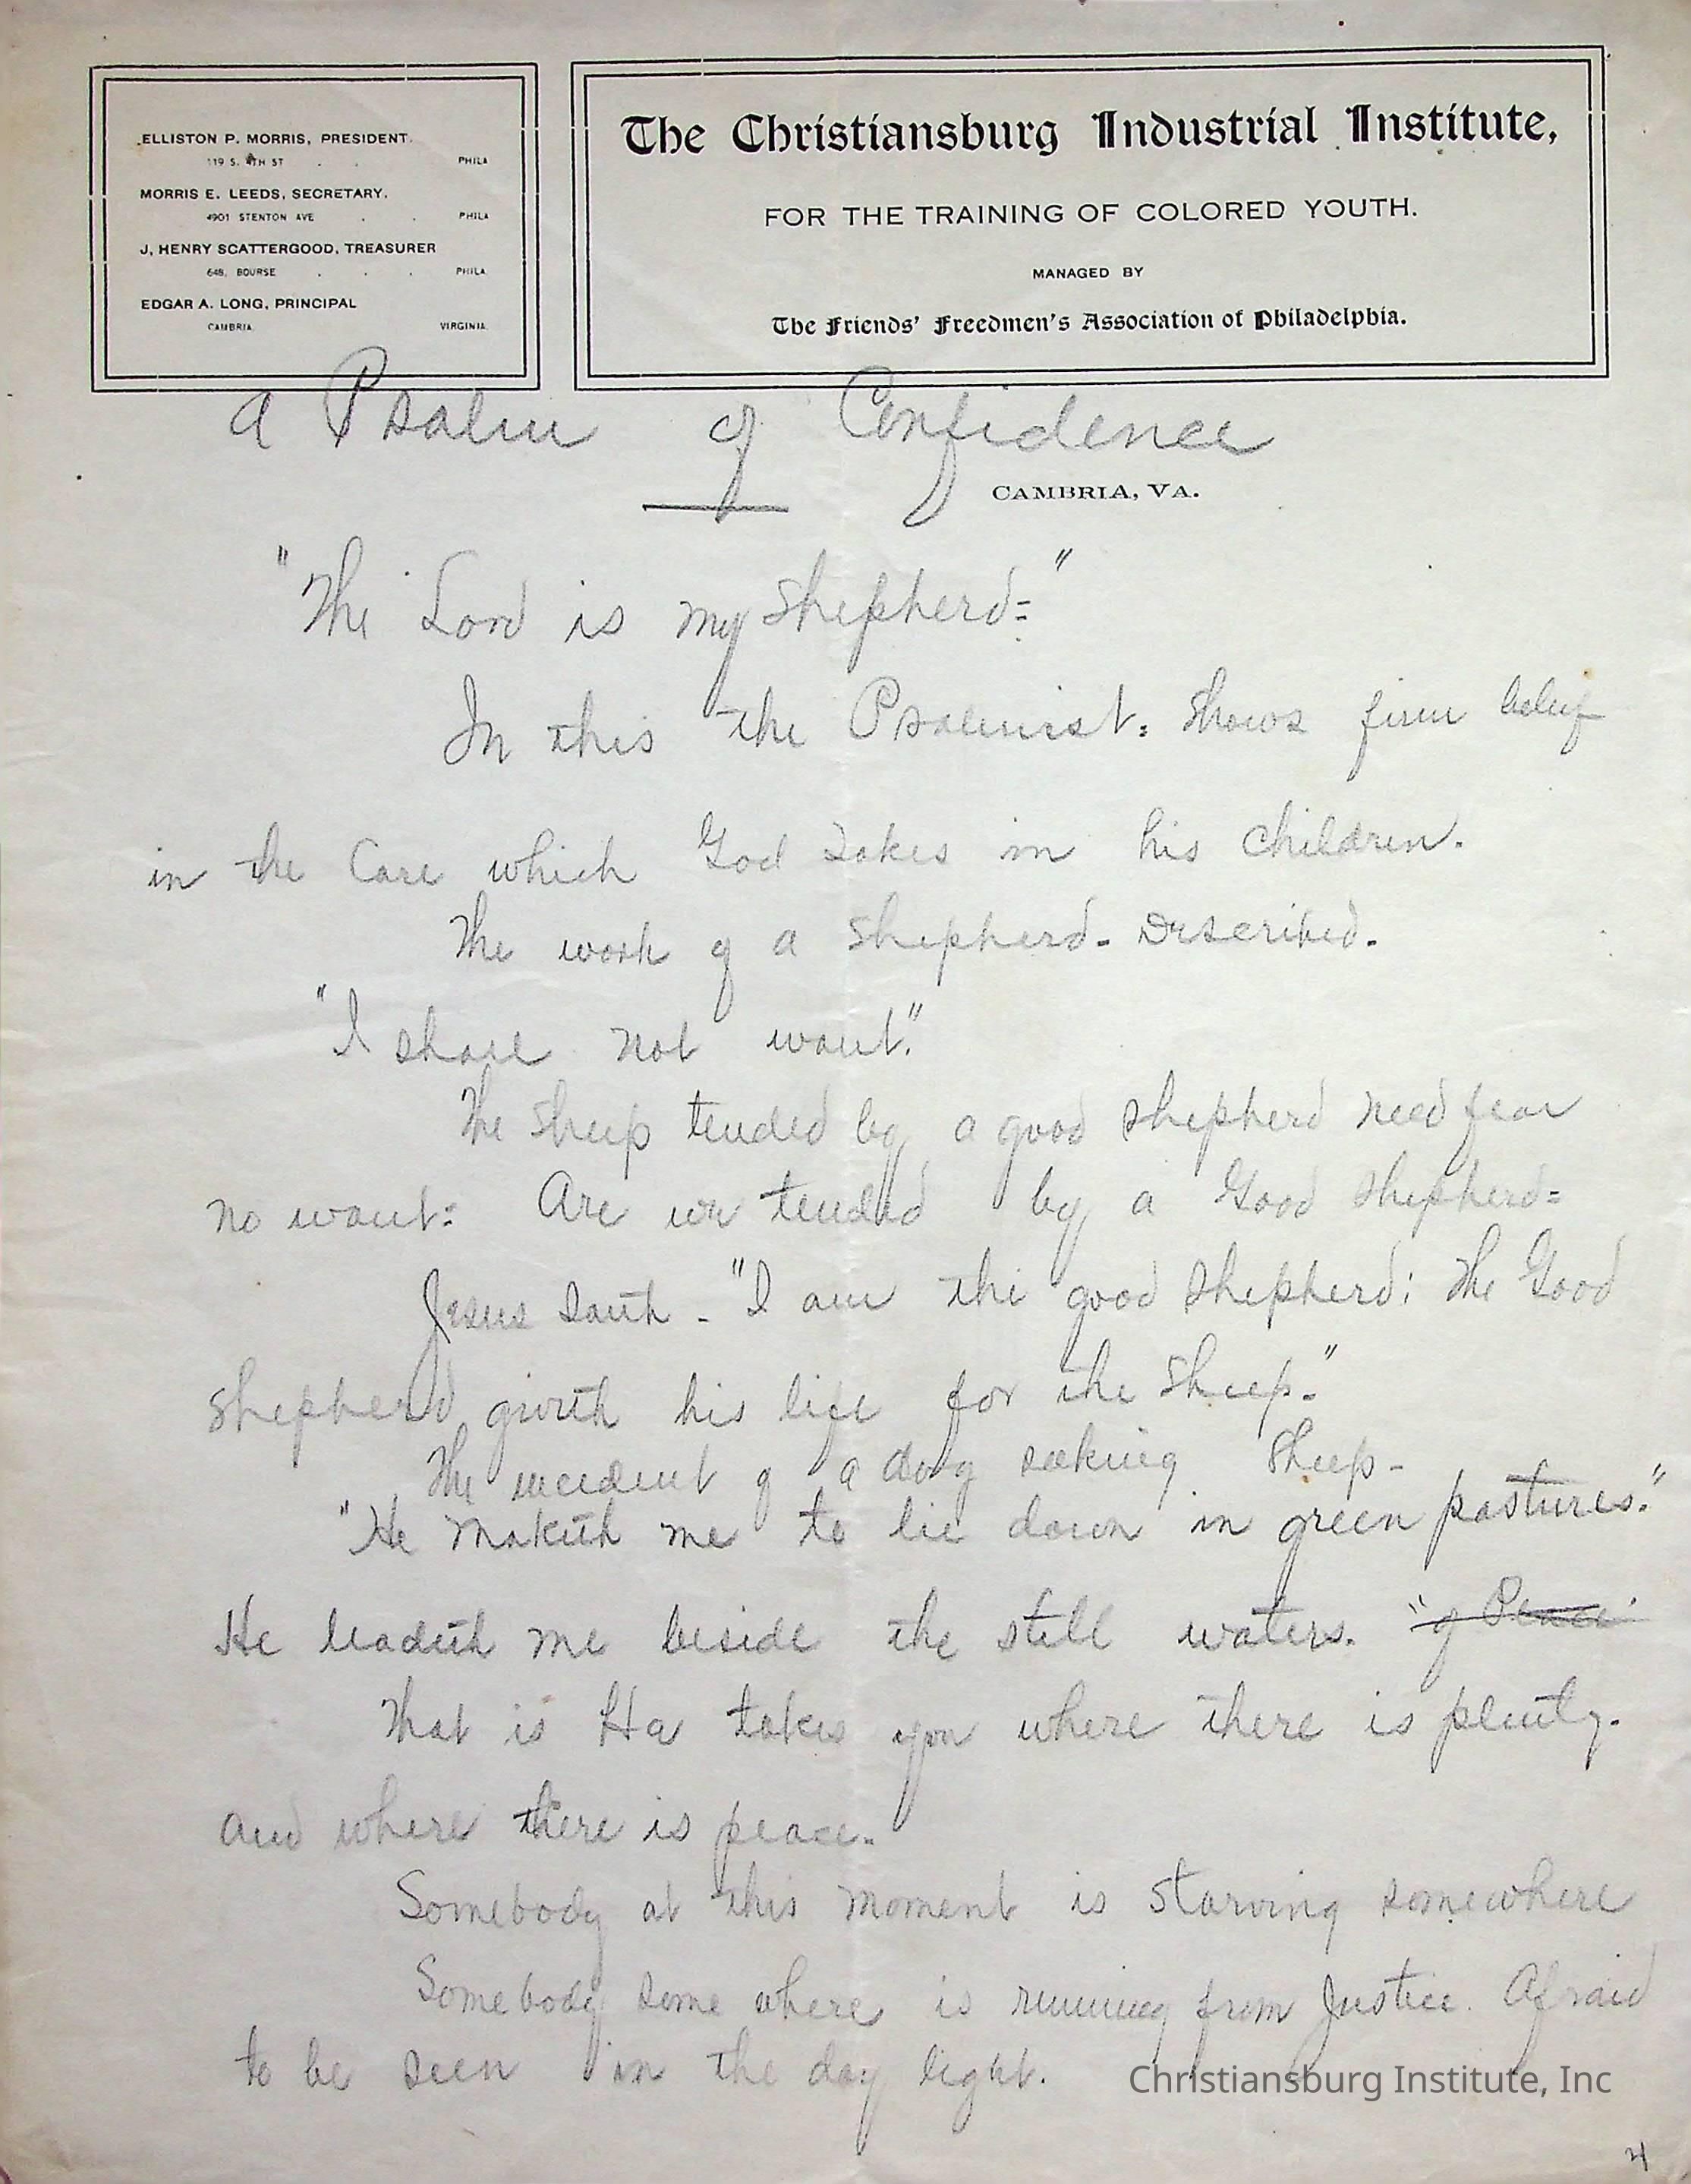 ELLISTON P. MORRIS, PRESIDENT.
119 S. 4TH ST . . PHILA
MORRIS E. LEEDS, SECRETARY.
4901 STENTON AVE . . PHILA
J, HENRY SCATTERGOOD, TREASURER
648, BOURSE . . . PHILA
EDGAR A. LONG, PRINCIPAL
CAMBRIA. VIRGINIA.
The Christiansburg Industrial Institute,
FOR THE TRAINING OF COLORED YOUTH.
MANAGED BY
The Friends' Freedmen's Association of Philadelphia.
A Psalm of Confidence
CAMBRIA, VA.
"The Lord is my Shepherd="
In this the Psalmist: Shows firm belief
in the Care which God takes in his Children.
The work of a Shepherd. Described.
"I shall not want."
The Sheep tended by a good shepherd need fear
no want: Are we tended by a Good Shepherd=
Jesus saith - "I am the good Shepherd: The Good
Shepherd giveth his life for the Sheep."
The incident of a dog seeking Sheep-
"He maketh me to lie down in green pastures."
He leadeth me beside the still waters. "of Peace"
That is He takes you where there is plenty.
and where there is peace.
Somebody at this moment is starving somewhere
Somebody some where is running from Justice. Afraid
to be seen in the day light.
Christiansburg Institute, Inc
4